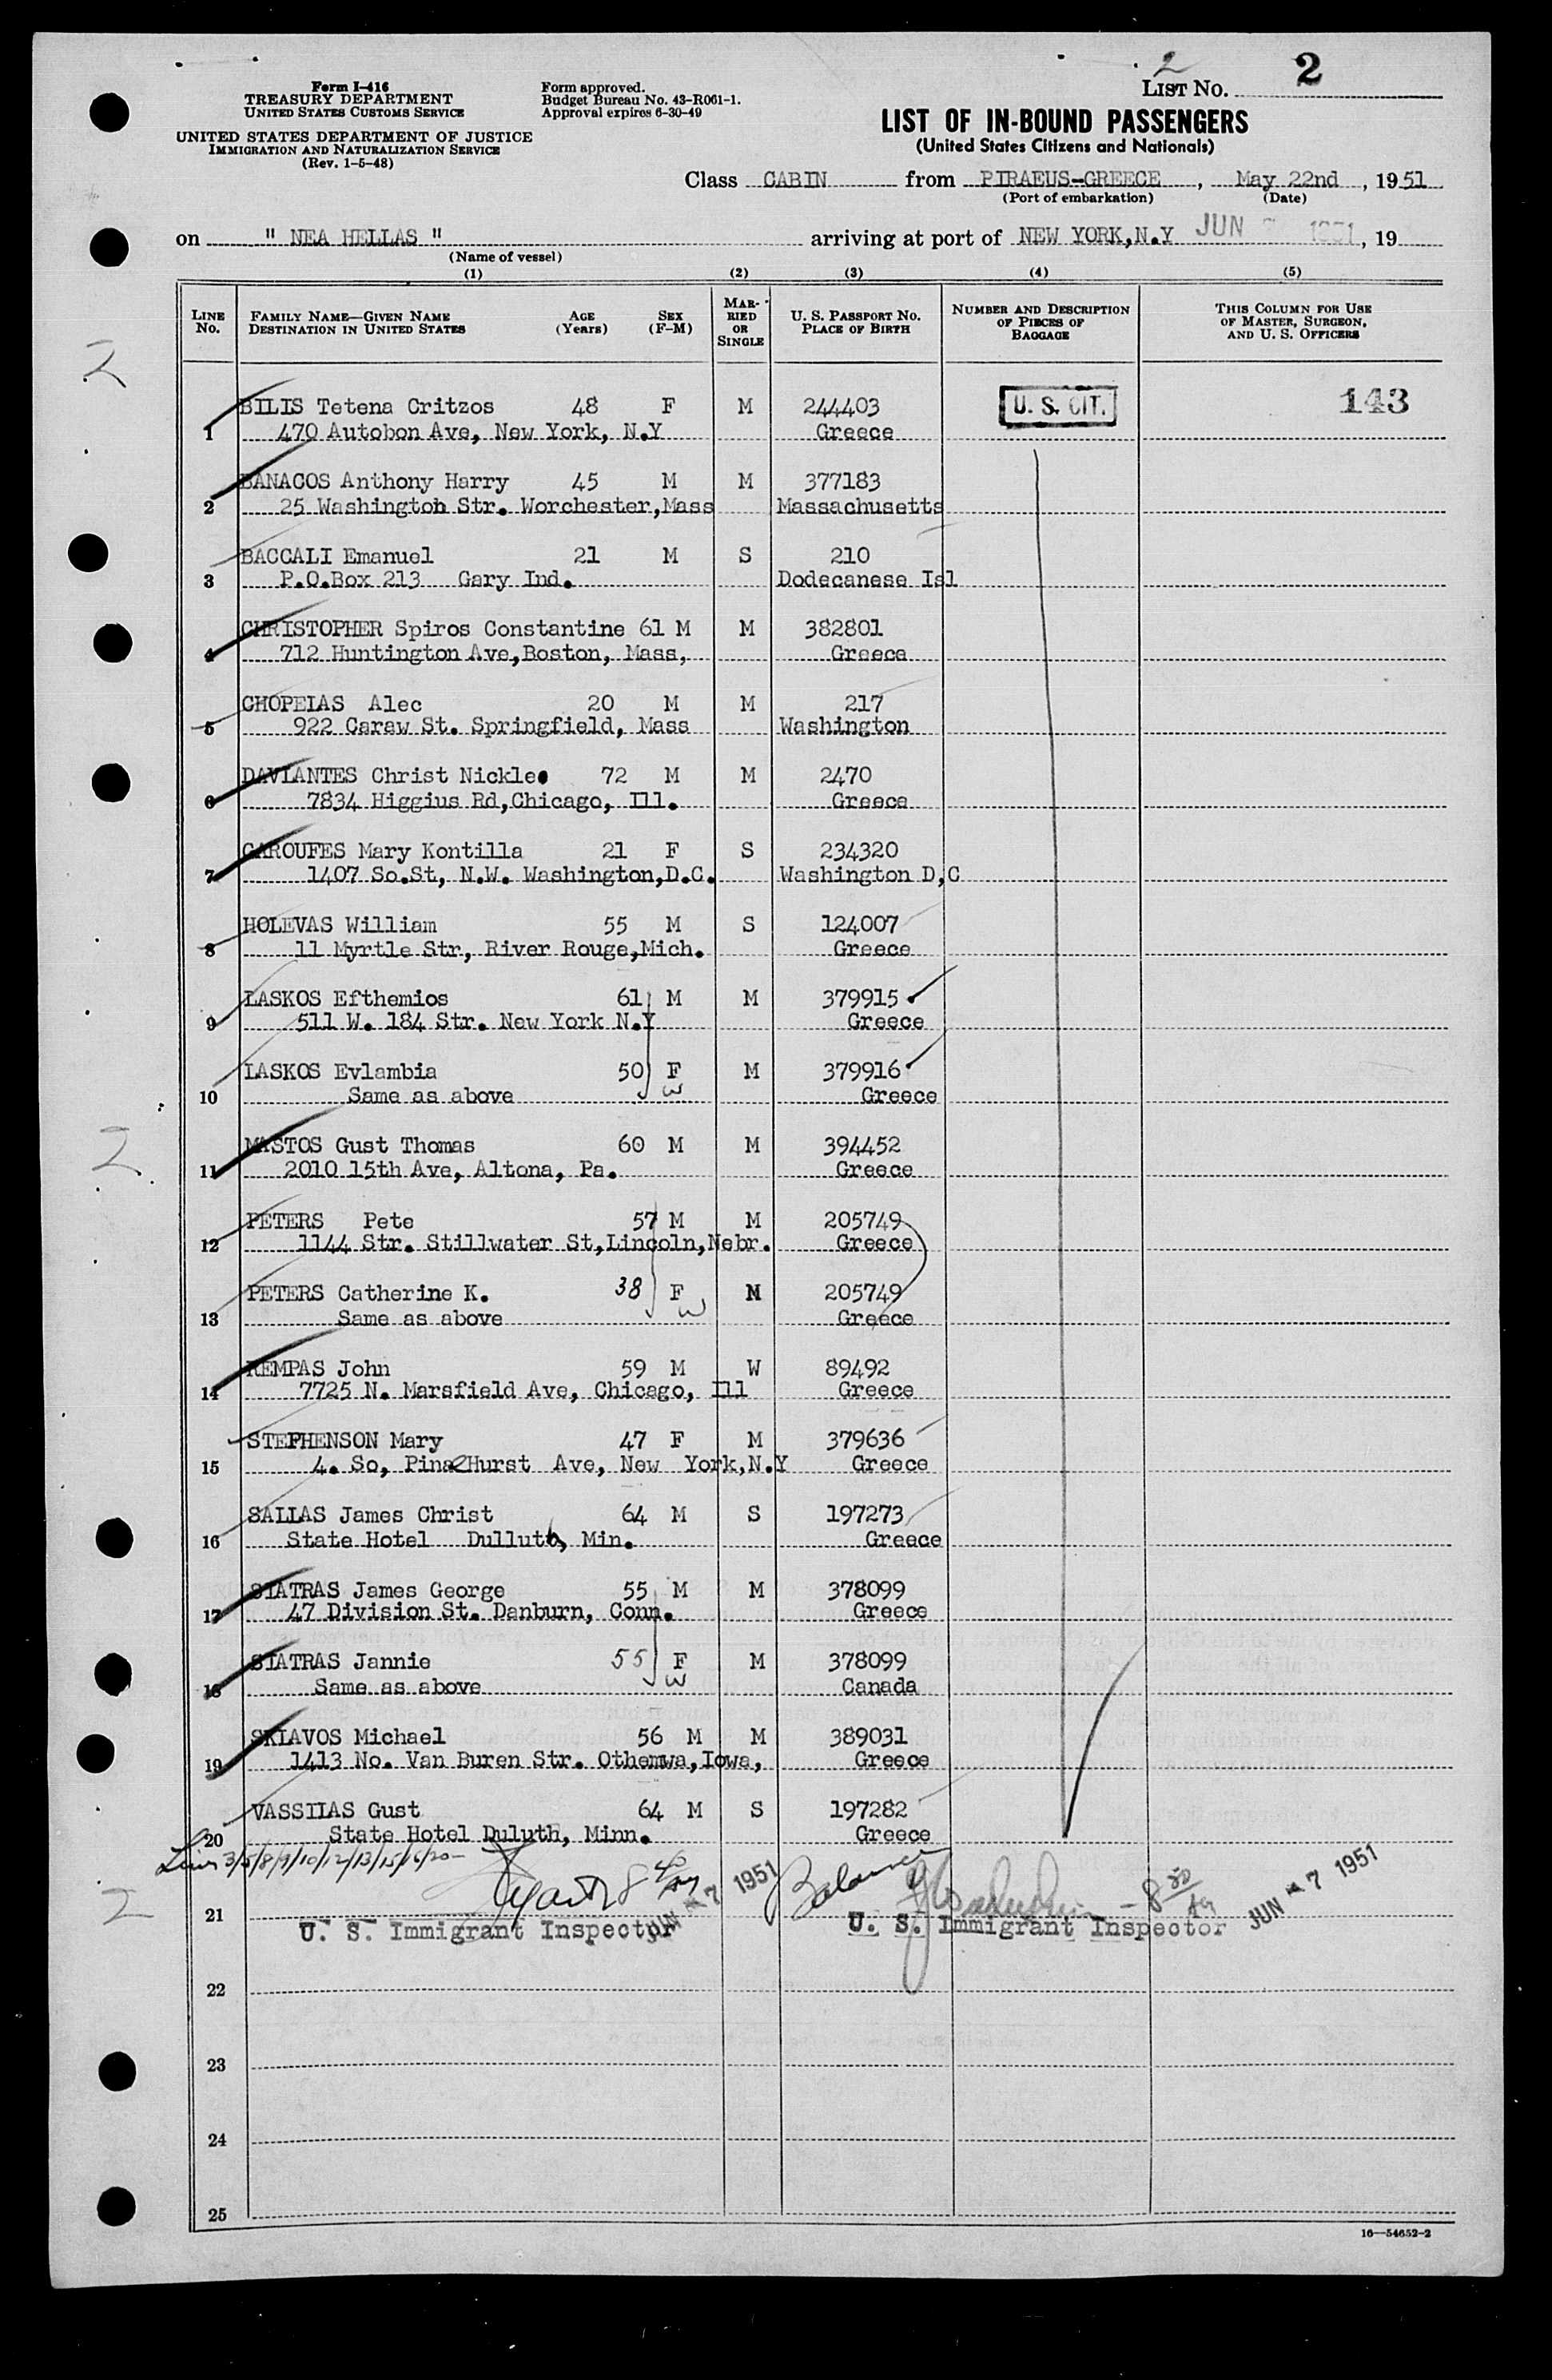 2
LIST No. 2
Form I-416
TREASURY DEPARTMENT
UNITED STATES CUSTOMS SERVICE
UNITED STATES DEPARTMENT OF JUSTICE
IMMIGRATION AND NATURALIZATION SERVICE
(Rev. 1-5-48)
Form approved.
Budget Bureau No. 43-R061-1.
Approval expires 6-30-49
LIST OF IN-BOUND PASSENGERS
(United States Citizens and Nationals)
Class CABIN from PIRAEUS-GREECE, May 22nd, 1951
(Port of embarkation) (Date)
on " NEA HELLAS " arriving at port of NEW YORK,N.Y JUN 7 1951, 19
(Name of vessel)
(1) (2) (3) (4) (5)
LINE No. FAMILY NAME—GIVEN NAME DESTINATION IN UNITED STATES AGE (Years) SEX (F-M) MARRIED OR SINGLE U. S. PASSPORT No. PLACE OF BIRTH NUMBER AND DESCRIPTION OF PIECES OF BAGGAGE THIS COLUMN FOR USE OF MASTER, SURGEON, AND U. S. OFFICERS
2
BILIS Tetena Critzos 48 F M 244403 U. S. CIT. 143
1 470 Autobon Ave, New York, N.Y Greece
BANACOS Anthony Harry 45 M M 377183
2 25 Washington Str. Worchester,Mass Massachusetts
BACCALI Emanuel 21 M S 210
3 P.O.Box 213 Gary Ind. Dodecanese Isl
CHRISTOPHER Spiros Constantine 61 M M 382801
4 712 Huntington Ave,Boston, Mass, Greece
CHOPEIAS Alec 20 M M 217
5 922 Caraw St. Springfield, Mass Washington
DAVLANTES Christ Nickle 72 M M 2470
6 7834 Higgius Rd,Chicago, Ill. Greece
GAROUFES Mary Kontilla 21 F S 234320
7 1407 So.St, N.W. Washington,D.C. Washington D,C
HOLEVAS William 55 M S 124007
8 11 Myrtle Str, River Rouge,Mich. Greece
LASKOS Efthemios 61 M M 379915
9 511 W. 184 Str. New York N.Y Greece
LASKOS Evlambia 50 F M 379916
10 Same as above W Greece
2
MASTOS Gust Thomas 60 M M 394452
11 2010 15th Ave, Altona, Pa. Greece
PETERS Pete 57 M M 205749
12 1144 Str. Stillwater St,Lincoln,Nebr. Greece
PETERS Catherine K. 38 F M 205749
13 Same as above W Greece
REMPAS John 59 M W 89492
14 7725 N. Marsfield Ave, Chicago, Ill Greece
STEPHENSON Mary 47 F M 379636
15 4. So, Pine Hurst Ave, New York,N.Y Greece
SALLAS James Christ 64 M S 197273
16 State Hotel Dulluth, Min. Greece
SIATRAS James George 55 M M 378099
17 47 Division St. Danburn, Conn. Greece
SIATRAS Jannie 55 F M 378099
18 Same as above W Canada
SKLAVOS Michael 56 M M 389031
19 1413 No. Van Buren Str. Othemwa,Iowa, Greece
VASSILAS Gust 64 M S 197282
20 State Hotel Duluth, Minn. Greece
Lines 3/5/8/9/10/12/13/15/16/20- JUN 7 1951 Balance JUN 7 1951
2
21 U. S. Immigrant Inspector U. S. Immigrant Inspector
22
23
24
25
16—54652-2